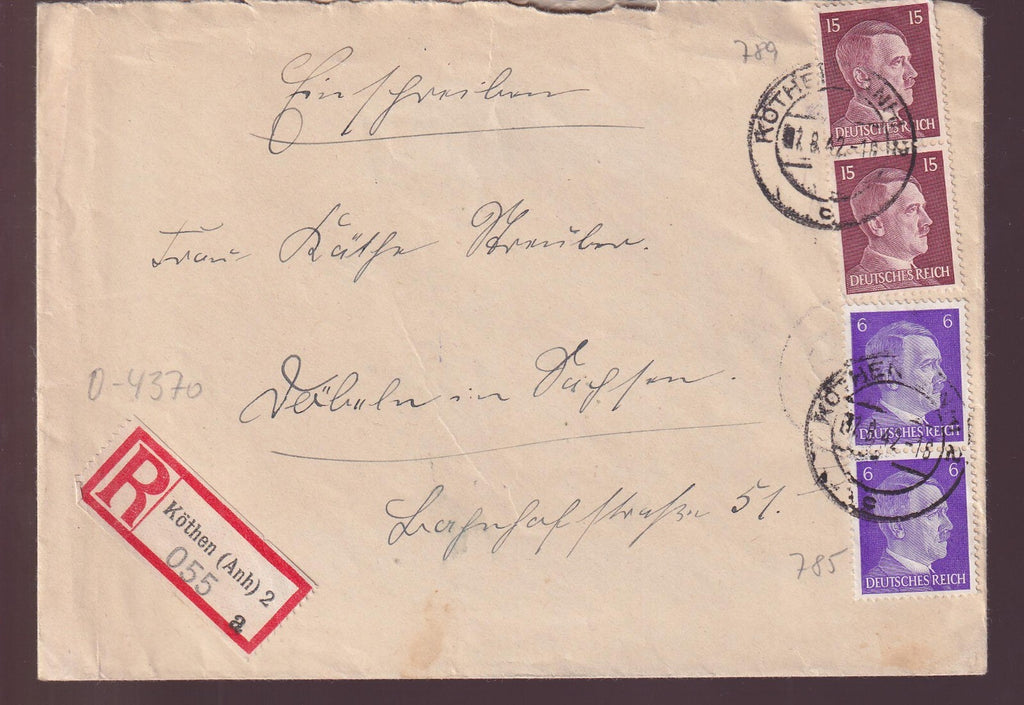 Einschreiben
789
15 15
DEUTSCHES REICH
KÖTHEN
8.42.-18
c
15 15
DEUTSCHES REICH
Frau Käthe Streuber.
6 6
DEUTSCHES REICH
KÖTHEN
8.42.-18
c
6 6
DEUTSCHES REICH
Döbeln in Sachsen.
O-4370
R
Köthen (Anh) 2
055
a
Bahnhofstraße 51.
785